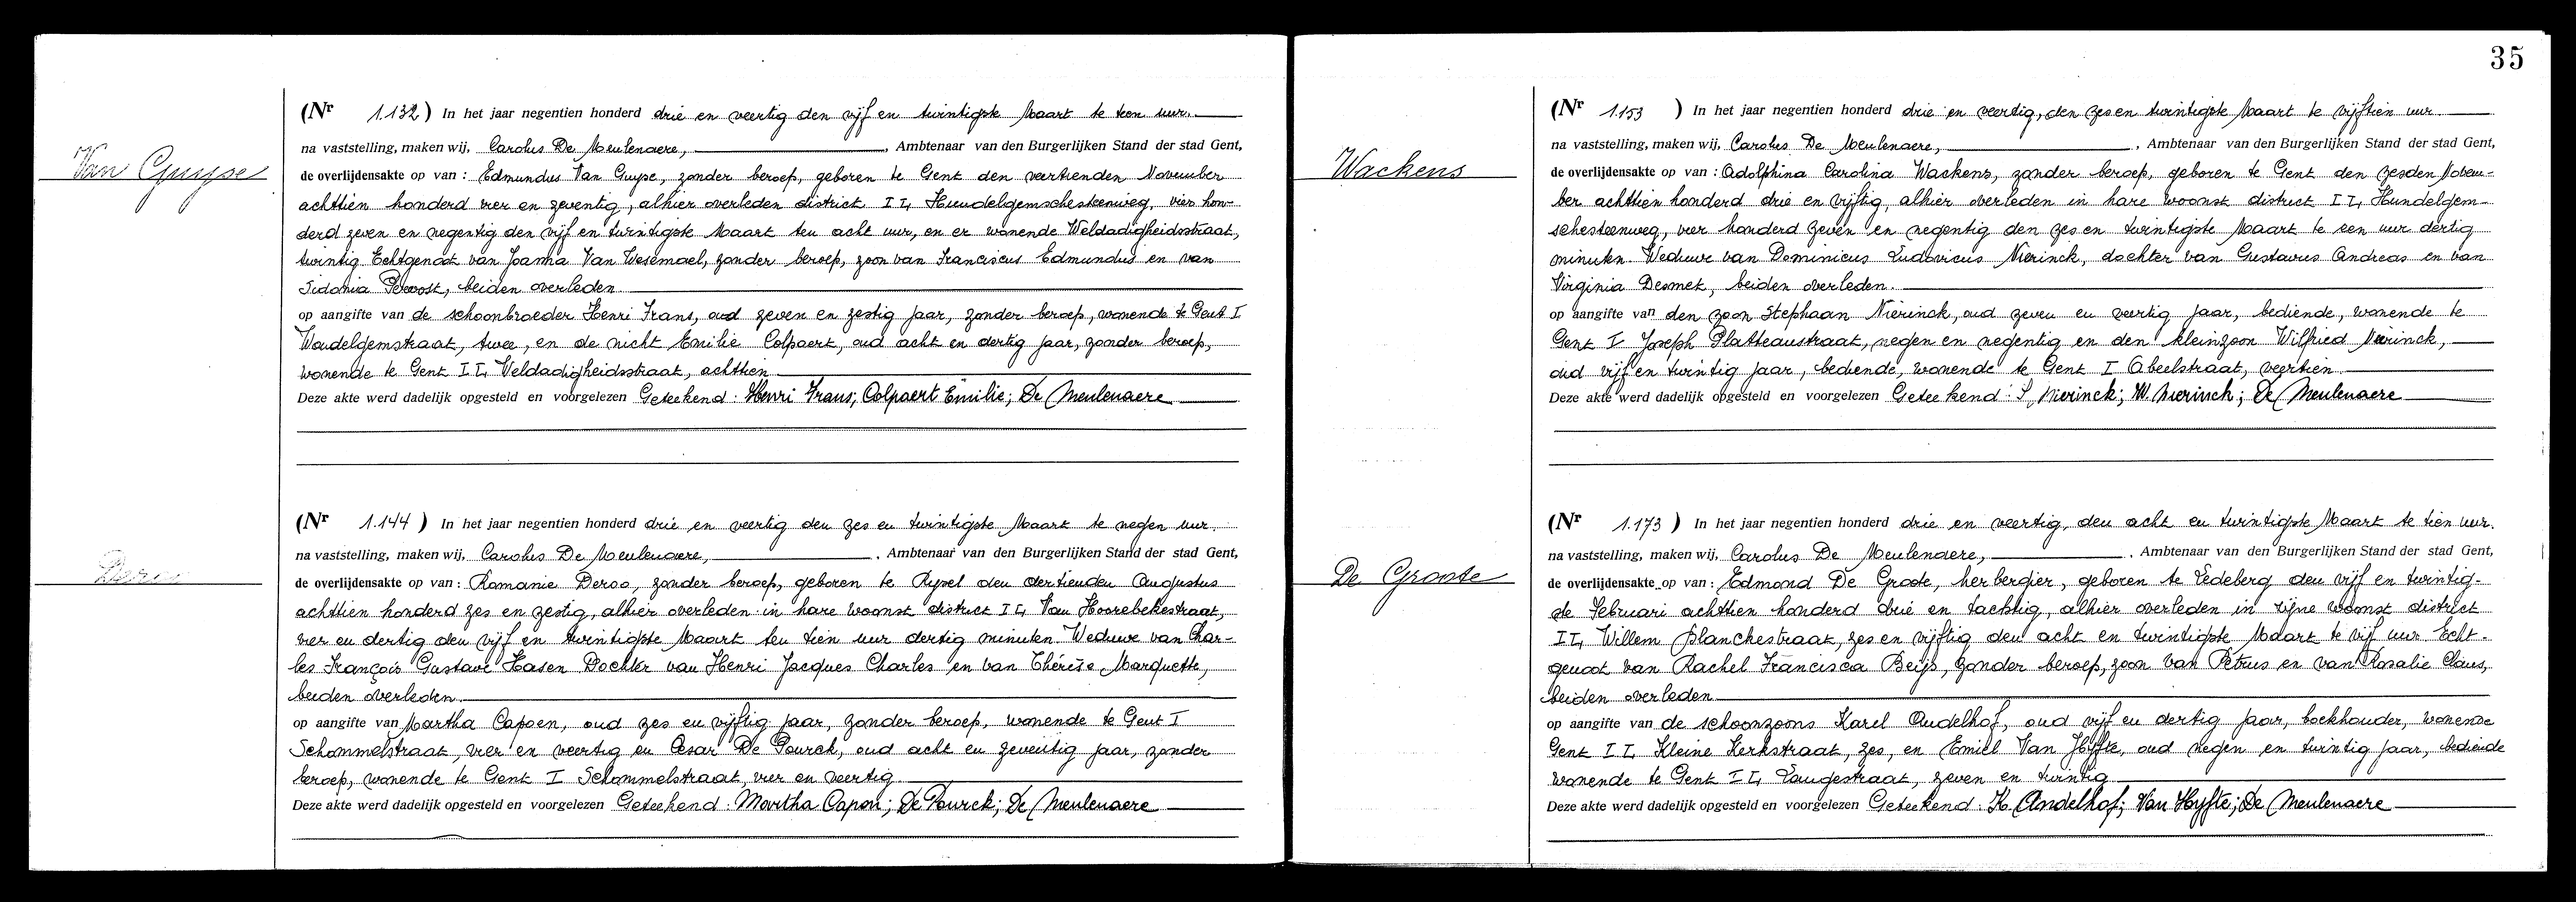 (Nr 1.132) In het jaar negentien honderd drie en veertig den vijf en twintigste Maart te tien uur.
na vaststelling, maken wij, Carolus De Meulenaere, , Ambtenaar van den Burgerlijken Stand der stad Gent,
Van Guyse
de overlijdensakte op van : Edmundus Van Guyse, zonder beroep, geboren te Gent den veertienden November
achttien honderd vier en zeventig, alhier overleden district II, Hundelgemschesteenweg, vier hon-
derd zeven en negentig den vijf en twintigste Maart ten acht uur, en er wonende Weldadigheidsstraat,
twintig. Echtgenoot van Joanna Van Wesemael, zonder beroep, zoon van Franciscus Edmundus en van
Sidonia Prevost, beiden overleden.
op aangifte van de schoonbroeder Henri Frans, oud zeven en zestig jaar, zonder beroep, wonende te Gent I
Wondelgemstraat, twee, en de nicht Emilie Colpaert, oud acht en dertig jaar, zonder beroep,
wonende te Gent II, Weldadigheidsstraat, achttien.
Deze akte werd dadelijk opgesteld en voorgelezen Geteekend : Henri Frans; Colpaert Emilie; De Meulenaere
(Nr 1.144) In het jaar negentien honderd drie en veertig den zes en twintigste Maart te negen uur.
na vaststelling, maken wij, Carolus De Meulenaere, , Ambtenaar van den Burgerlijken Stand der stad Gent,
Deroo
de overlijdensakte op van : Romanie Deroo, zonder beroep, geboren te Rysel den dertienden Augustus
achttien honderd zes en zestig, alhier overleden in hare woonst district II, Van Hoorebekestraat,
vier en dertig den vijf en twintigste Maart ten tien uur dertig minuten. Weduwe van Char-
les François Gustave Hasen. Dochter van Henri Jacques Charles en van Thérèse Marquette,
beiden overleden.
op aangifte van Martha Capoen, oud zes en vijftig jaar, zonder beroep, wonende te Gent I
Schommelstraat, vier en veertig en Cesar De Pourck, oud acht en zeventig jaar, zonder
beroep, wonende te Gent I Schommelstraat, vier en veertig.
Deze akte werd dadelijk opgesteld en voorgelezen Geteekend : Martha Capon; De Pourck; De Meulenaere
35
(Nr 1.153 ) In het jaar negentien honderd drie en veertig, den zes en twintigste Maart te vijftien uur.
na vaststelling, maken wij, Carolus De Meulenaere, , Ambtenaar van den Burgerlijken Stand der stad Gent,
Wackens
de overlijdensakte op van : Adolphina Carolina Wackens, zonder beroep, geboren te Gent den zesden Novem-
ber achttien honderd drie en vijftig, alhier overleden in hare woonst district II, Hundelgem-
schesteenweg, vier honderd zeven en negentig den zes en twintigste Maart te een uur dertig
minuten. Weduwe van Dominicus Ludovicus Nierinck, dochter van Gustavus Andreas en van
Virginia Desmet, beiden overleden.
op aangifte van den zoon Stephaan Nierinck, oud zeven en veertig jaar, bediende, wonende te
Gent I Joseph Plateaustraat, negen en negentig en den kleinzoon Wilfried Nierinck,
oud vijf en twintig jaar, bediende, wonende te Gent I Abeelstraat, veertien.
Deze akte werd dadelijk opgesteld en voorgelezen Geteekend : S. Nierinck; W. Nierinck; De Meulenaere
(Nr 1.173 ) In het jaar negentien honderd drie en veertig, den acht en twintigste Maart te tien uur.
na vaststelling, maken wij, Carolus De Meulenaere, , Ambtenaar van den Burgerlijken Stand der stad Gent,
De Groote
de overlijdensakte op van : Edmond De Groote, herbergier, geboren te Ledeberg den vijf en twintig-
ste Februari achttien honderd drie en tachtig, alhier overleden in zijne woonst district
II, Willem Blanckestraat, zes en vijftig den acht en twintigste Maart te vijf uur. Echt-
genoot van Rachel Francisca Beijs, zonder beroep, zoon van Petrus en van Rosalie Claus,
beiden overleden
op aangifte van de schoonzoons Karel Oudelhof, oud vijf en dertig jaar, boekhouder, wonende
Gent II, Kleine Kerkstraat, zes, en Emiel Van Hyfte, oud negen en twintig jaar, bediende
wonende te Gent II, Langestraat, zeven en twintig
Deze akte werd dadelijk opgesteld en voorgelezen Geteekend : K. Andelhof; Van Hyfte; De Meulenaere